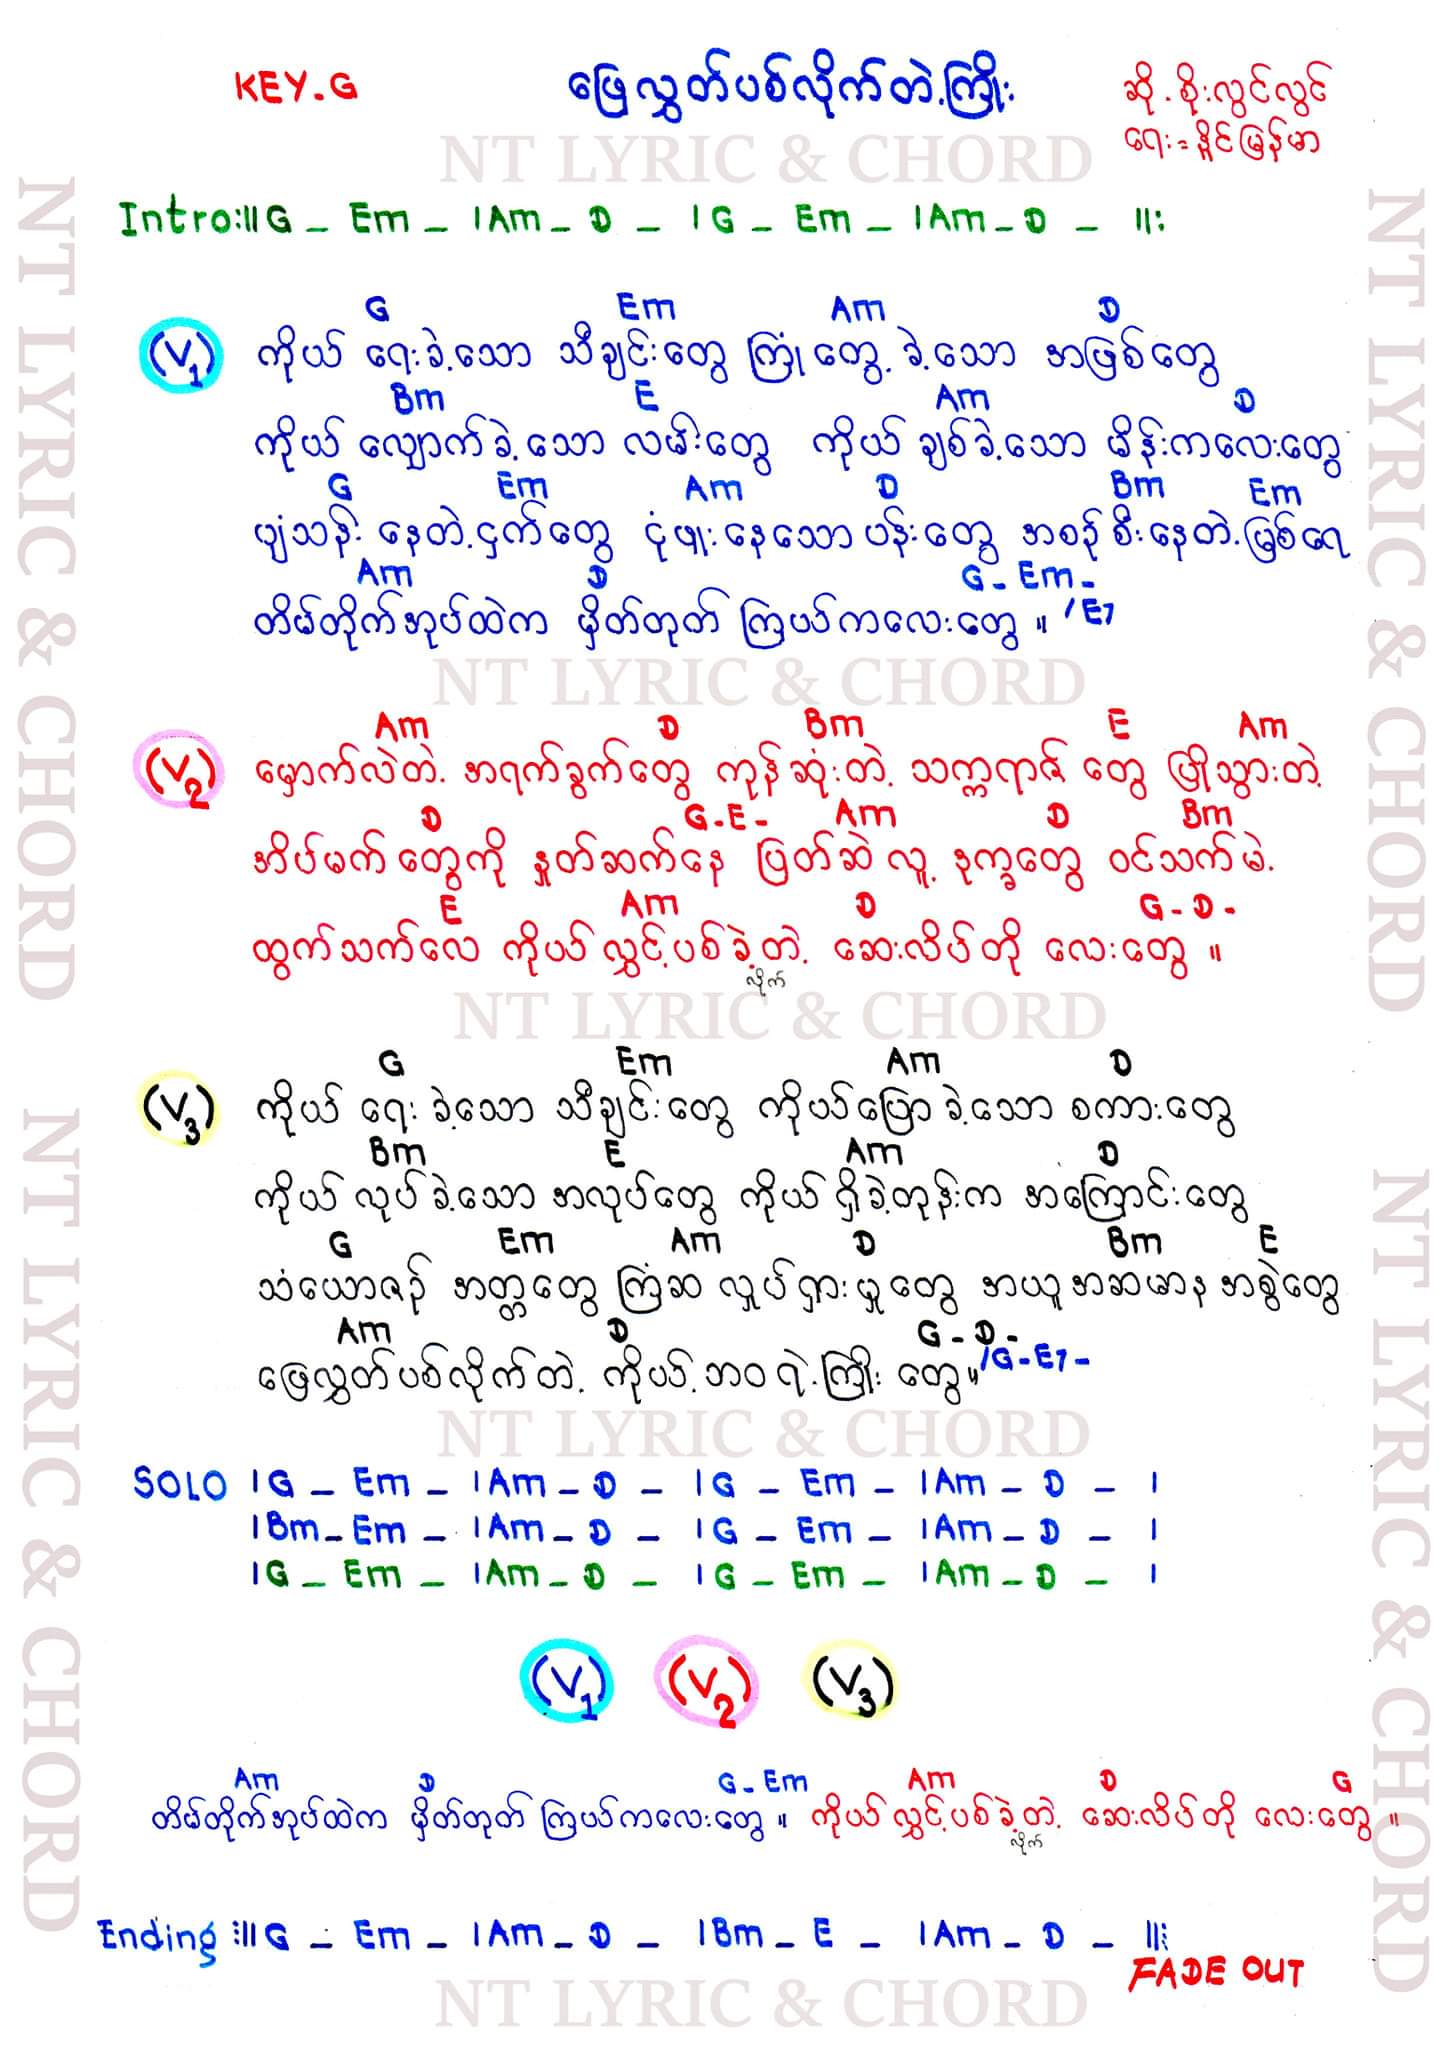 KEY.G ဖြေလွှတ်ပစ်လိုက်တဲ့ကြိုး ဆို. စိုးလွင်လွင်
ရေး= နိုင်မြန်မာ
NT LYRIC & CHORD
Intro:||G _ Em _ |Am _ D _ |G _ Em _ |Am _ D _ ||:
G Em Am D
(V1) ကိုယ် ရေးခဲ့သော သီချင်းတွေ ကြုံတွေ့ ခဲ့သော အဖြစ်တွေ
Bm E Am D
ကိုယ် လျှောက်ခဲ့သော လမ်းတွေ ကိုယ် ချစ်ခဲ့သော မိန်းကလေးတွေ
G Em Am D Bm Em
ပျံသန်း နေတဲ့ငှက်တွေ ငုံဖူးနေသောပန်းတွေ အစဉ်စီးနေတဲ့မြစ်ရေ
Am D G - Em - /E7
တိမ်တိုက်အုပ်ထဲက မှိတ်တုတ် ကြယ်ကလေးတွေ ။
NT LYRIC & CHORD
Am D Bm E Am
(V2) မှောက်လဲတဲ့ အရက်ခွက်တွေ ကုန်ဆုံးတဲ့ သက္ကရာဇ် တွေ ဖြိုသွားတဲ့
D G-E- Am D Bm
အိပ်မက်တွေကို နှုတ်ဆက်နေ ပြတ်ဆဲ လူ့ ဒုက္ခတွေ ဝင်သက်မဲ့
E Am D G - D -
ထွက်သက်လေ ကိုယ်လွှင့်ပစ်ခဲ့တဲ့ ဆေးလိပ်တို လေးတွေ ။
လိုက်
NT LYRIC & CHORD
G Em Am D
(V3) ကိုယ် ရေး ခဲ့သော သီချင်းတွေ ကိုယ်ပြော ခဲ့သော စကားတွေ
Bm E Am D
ကိုယ် လုပ်ခဲ့သော အလုပ်တွေ ကိုယ် ရှိခဲ့တုန်းက အကြောင်းတွေ
G Em Am D Bm E
သံယောဇဉ် အတ္တတွေ ကြံဆ လှုပ်ရှားမှုတွေ အယူအဆမာန အစွဲတွေ
Am D G - D - /G-E7-
ဖြေလွှတ်ပစ်လိုက်တဲ့ ကိုယ့်ဘဝရဲ့ကြိုး တွေ။
NT LYRIC & CHORD
SOLO |G _ Em _ |Am _ D _ |G _ Em _ |Am _ D _ |
|Bm _ Em _ |Am _ D _ |G _ Em _ |Am _ D _ |
|G _ Em _ |Am _ D _ |G _ Em _ |Am _ D _ |
(V1) (V2) (V3)
Am D G - Em Am D G
တိမ်တိုက်အုပ်ထဲက မှိတ်တုတ် ကြယ်ကလေးတွေ ။ ကိုယ်လွှင့်ပစ်ခဲ့တဲ့ ဆေးလိပ်တို လေးတွေ ။
လိုက်
Ending :||G _ Em _ |Am _ D _ |Bm _ E _ |Am _ D _ ||:
FADE OUT
NT LYRIC & CHORD
NT LYRIC & CHORD
NT LYRIC & CHORD
NT LYRIC & CHORD
NT LYRIC & CHORD